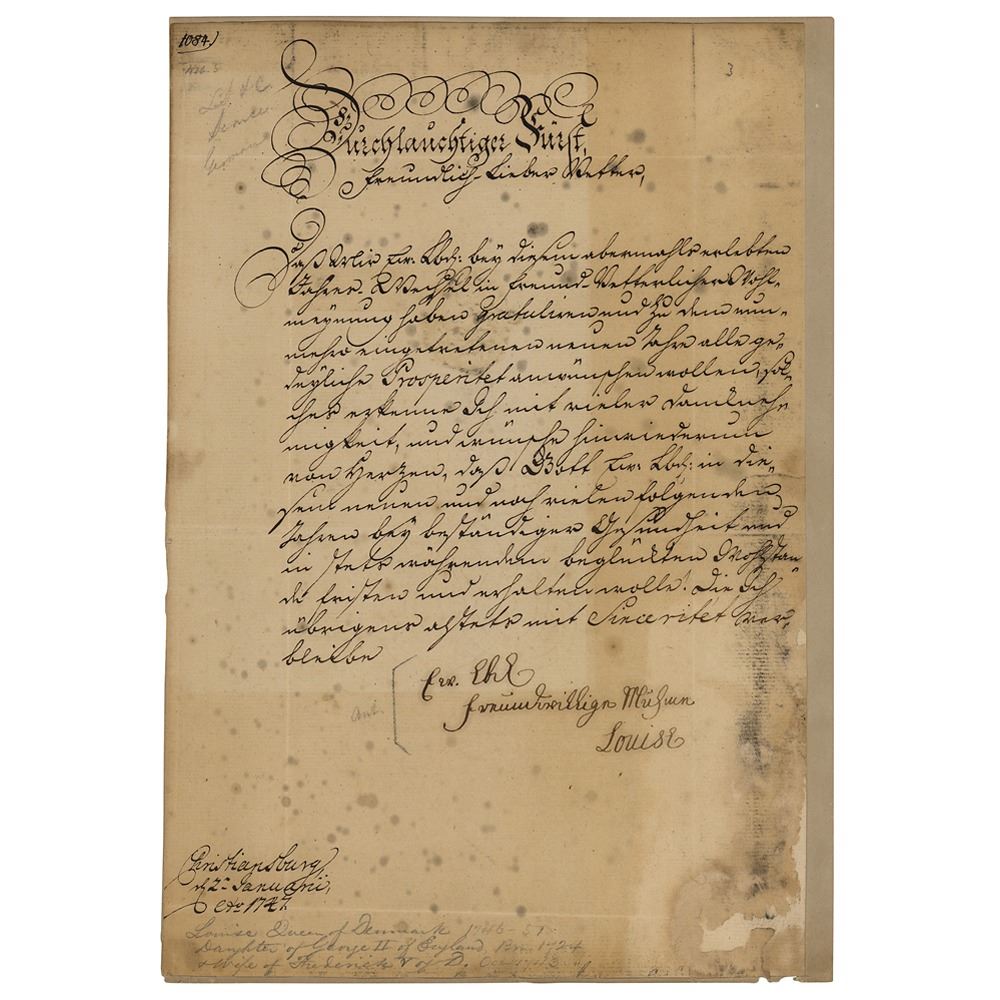 1084)
3
Durchlauchtiger Fürst,
Freundlich-Lieber Vetter,
Daß Wir Ew: Lbd: bey diesem abermahls erlebten
Jahres-Wechsel in Freund-Vetterlicher Wohl-
meynung haben gratuliren und zu dem nun-
mehro eingetretenen neuen Jahre alle ge-
deyliche Prosperitet anwünschen wollen, sol-
ches erkenne Ich mit vieler Danckneh-
migkeit, und wünsche hinwiederum
von Hertzen, daß Gott Ew: Lbd: in die-
sem neuen und noch vielen folgenden
Jahren bey beständiger Gesundheit und
in stets währendem beglückten Wohlstan-
de fristen und erhalten wolle! Die Ich
übrigens alstets mit Sinceritet ver-
bleibe
Ew. Lbd
freundwillige Muhme
Louise
Christiansburg,
d 2 Januarii,
1747.
Louise Queen of Denmark 1746-51
Daughter of George II of England Born 1724
& Wife of Frederick V of D.